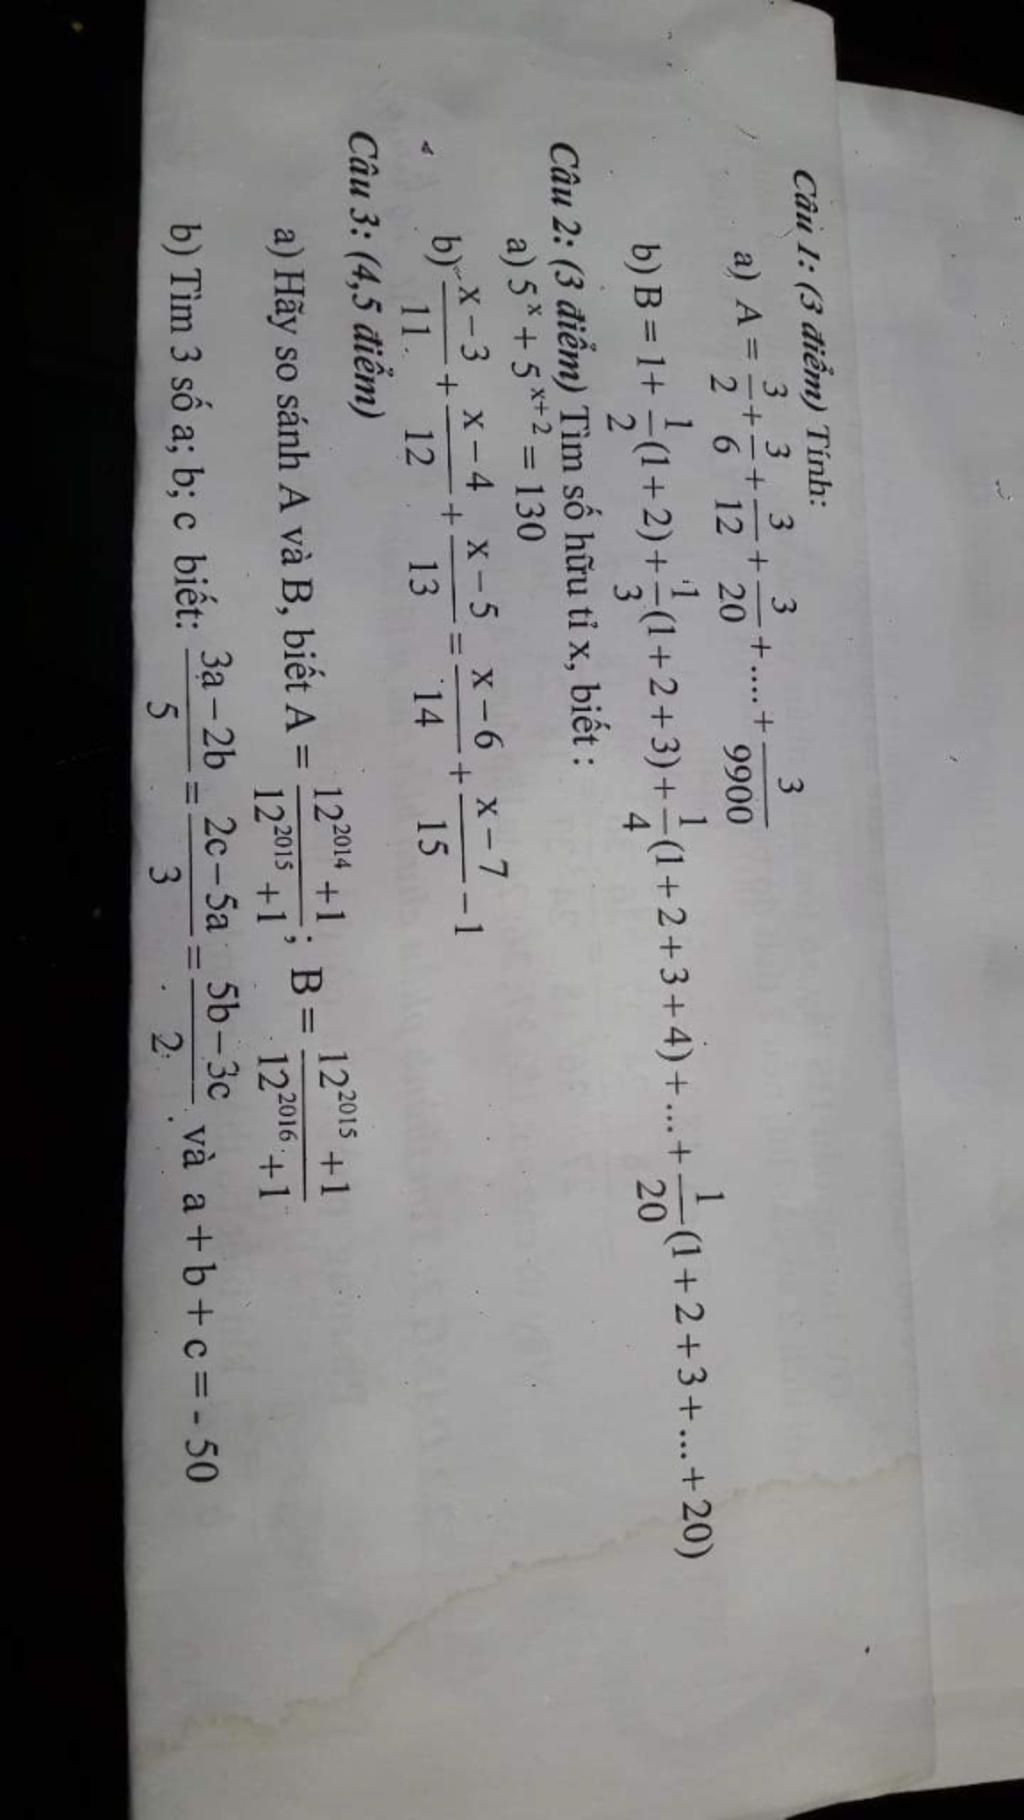 Câu 1: (3 điểm) Tính:
a) A = 3/2 + 3/6 + 3/12 + 3/20 + ..... + 3/9900
b) B = 1 + 1/2(1 + 2) + 1/3(1 + 2 + 3) + 1/4(1 + 2 + 3 + 4) + ... + 1/20(1 + 2 + 3 + ... + 20)
Câu 2: (3 điểm) Tìm số hữu tỉ x, biết :
a) 5^x + 5^(x+2) = 130
b) (x − 3)/11 + (x − 4)/12 + (x − 5)/13 = (x − 6)/14 + (x − 7)/15 − 1
Câu 3: (4,5 điểm)
a) Hãy so sánh A và B, biết A = (12^2014 + 1)/(12^2015 + 1); B = (12^2015 + 1)/(12^2016 + 1)
b) Tìm 3 số a; b; c biết: (3a − 2b)/5 = (2c − 5a)/3 = (5b − 3c)/2 và a + b + c = - 50